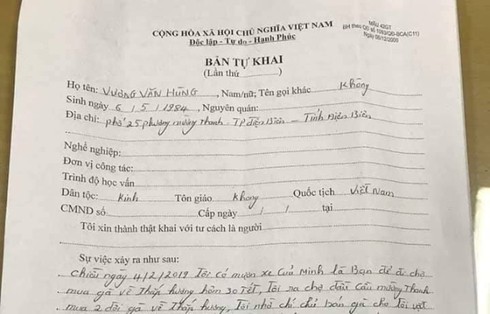 CỘNG HÒA XÃ HỘI CHỦ NGHĨA VIỆT NAM
Độc lập - Tự do - Hạnh Phúc
BẢN TỰ KHAI
(Lần thứ ............)
Họ tên: VƯƠNG VĂN HÙNG, Nam/nữ; Tên gọi khác Không
Sinh ngày 6/5/1984, Nguyên quán:
Địa chỉ: phố 25 phường mường Thanh - TP Điện Biên - Tỉnh Điện Biên
Nghề nghiệp:
Đơn vị công tác:
Trình độ học vấn
Dân tộc: Kinh Tôn giáo Không Quốc tịch Việt Nam
CMND số Cấp ngày / / tại
Tôi xin thành thật khai với tư cách là người
Sự việc xảy ra như sau:
chiều ngày 4/2/2019 Tôi có mượn xe Của Minh là Bạn để đi chợ
mua gà về Thắp hương hôm 30 TẾT, Tôi ra chợ đầu Cầu mường Thanh
mua 2 đôi gà về Thắp hương, Tôi nhờ chị chủ bán gà cho Tôi vặt